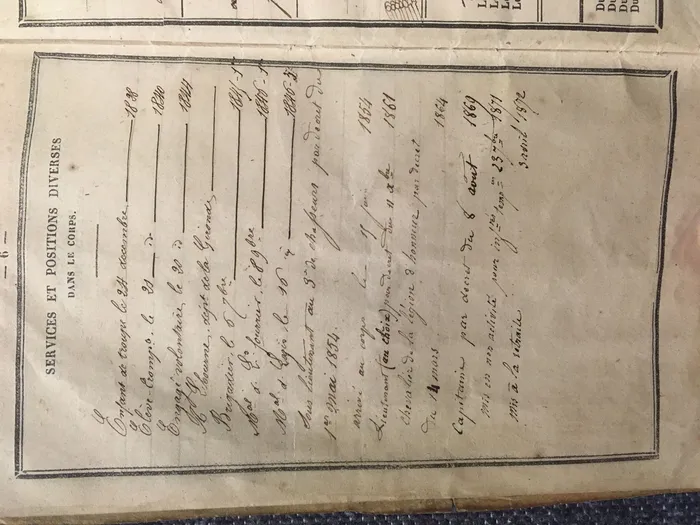 — 6 —
SERVICES ET POSITIONS DIVERSES
DANS LE CORPS.
Enfant de troupe le 24 décembre 1838
Élève-tromp. le 21 d° 1840
Engagé volontaire le 20 d° 1844
Libourne, dépt de la Gironde
Brigadier le 6 9bre 1845
Mal d. L. fourrier le 8 9bre 1846
Mal d. Logis le 16 d° 1846
Sous lieutenant au 3e de chasseurs par décret du
1er mai 1854.
arrivé au corps le 15 juin 1854
Lieutenant (au choix) par décret du 11 Xbre 1861
chevalier de la légion d'honneur par décret
du 14 mars 1864
Capitaine par décret du 6 août 1869
mis en non activité pour 23 9bre 1871
mis à la retraite 3 avril 1872
Du
Du
Du
Du